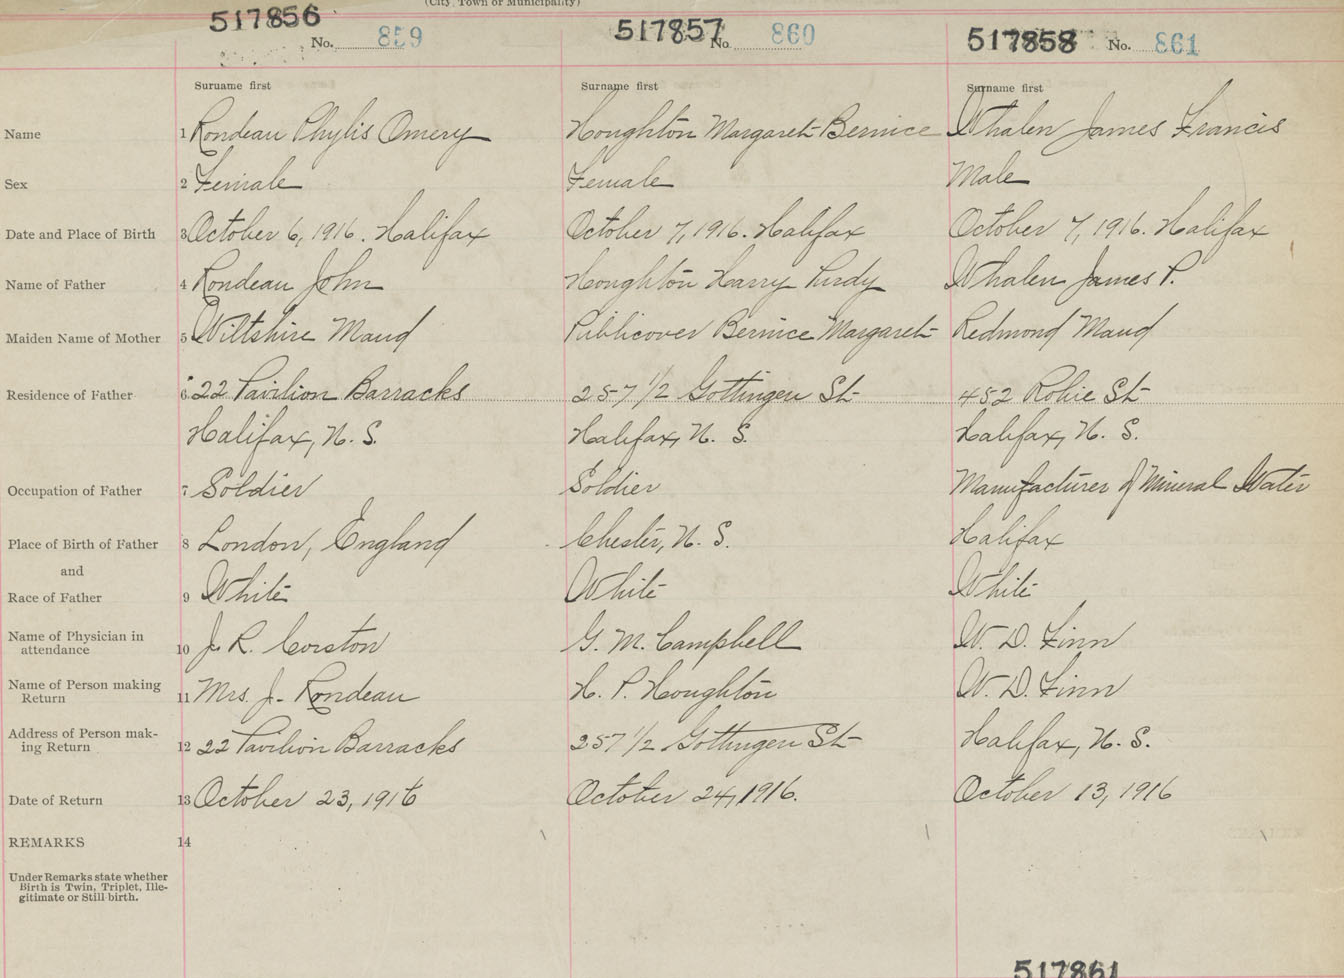 (City, Town or Municipality)
517856 No. 859 517857 No. 860 517858 No. 861
Surname first Surname first Surname first
Name 1 Rondeau Phylis Omery Houghton Margaret Bernice Whalen James Francis
Sex 2 Female Female Male
Date and Place of Birth 3 October 6, 1916. Halifax October 7, 1916. Halifax October 7, 1916. Halifax
Name of Father 4 Rondeau John Houghton Harry Purdy Whalen James P.
Maiden Name of Mother 5 Wiltshire Maud Publicover Bernice Margaret Redmond Maud
Residence of Father 6 22 Pavilion Barracks 257 1/2 Gottingen St 452 Robie St
Halifax, N. S. Halifax, N. S. Halifax, N. S.
Occupation of Father 7 Soldier Soldier Manufacturer of Mineral Water
Place of Birth of Father 8 London, England Chester, N. S. Halifax
and
Race of Father 9 White White White
Name of Physician in
attendance 10 J. R. Corston G. M. Campbell W. D. Finn
Name of Person making
Return 11 Mrs. J. Rondeau H. P. Houghton W. D. Finn
Address of Person mak-
ing Return 12 22 Pavilion Barracks 257 1/2 Gottingen St Halifax, N. S.
Date of Return 13 October 23, 1916 October 24, 1916. October 13, 1916
REMARKS 14
Under Remarks state whether
Birth is Twin, Triplet, Ille-
gitimate or Still-birth.
517861